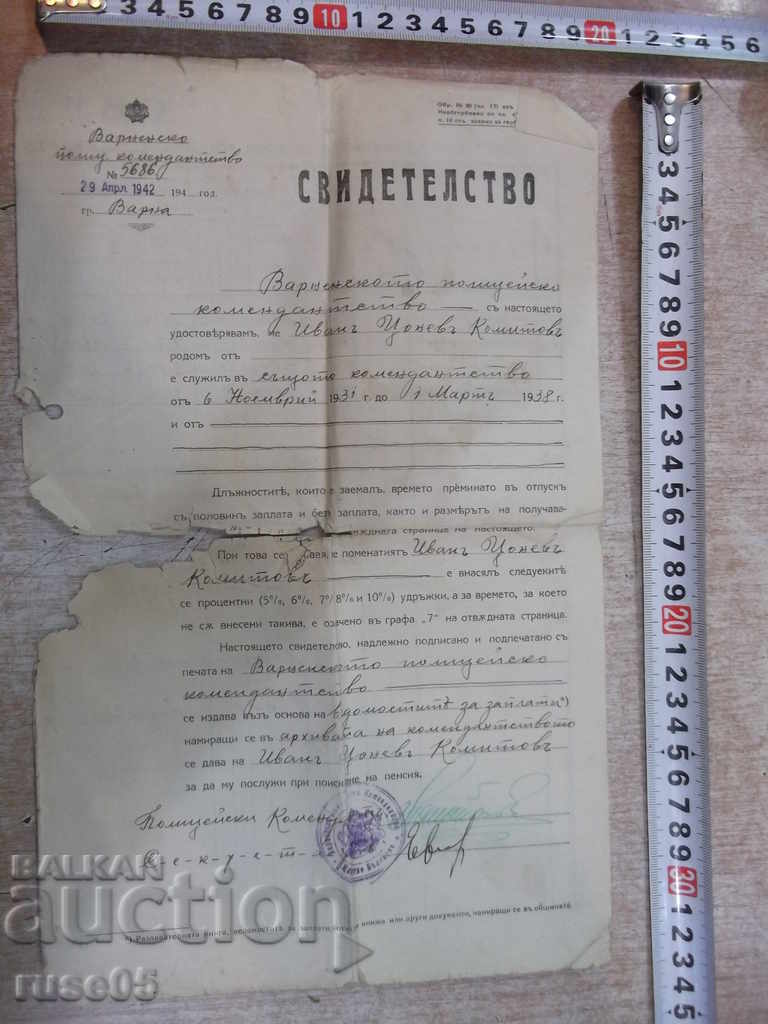 3 4 5 6 7 8 9 10 1 2 3 4 5 6 7 8 9 20 1 2 3 4 5 6
Обр. № 80 (чл. 17) отъ
Варненско
полиц. комендантство
№ 5686
29 Апрл 1942 194 год.
гр. Варна
СВИДЕТЕЛСТВО
Варненското полицейско
комендантство съ настоящето
удостовѣрявамъ, че Иванъ Цоневъ Комитовъ
родомъ отъ
е служилъ въ същото комендантство
отъ 6 Ноемврий 1931 г. до 1 Мартъ 1938 г.
и отъ
Длъжноститѣ, които е заемалъ, времето прѣминато въ отпускъ
съ половинъ заплата и безъ заплата, както и размѣрътъ на получава-
страница на настоящето.
При това се, че поменатиятъ Иванъ Цоневъ
Комитовъ е внасялъ следуекитѣ
се процентни (5%, 6%, 7% 8% и 10%) удръжки, а за времето, за което
не сѫ внесени такива, е означено въ графа „7" на отвѫдната страница.
Настоящето свидетелство, надлежно подписано и подпечатано съ
печата на Варненското полицейско
комендантство
се издава възъ основа на вѣдомоститѣ за заплати*)
намиращи се въ архивата на комендантството
се дава на Иванъ Цоневъ Комитовъ
за да му послужи при поискане на пенсия.
Полицейски Комендантъ
С-е-к-р-е-т-
*) Разплатната книга, ведомостите за заплати или други документи, намиращи се въ общината
3 4 5 6 7 8 9 10 1 2 3 4 5 6 7 8 9 20 1 2 3 4 5 6 7 8 9 20 1 2 3 4 5
БАЛКАН
Auction
ruse05